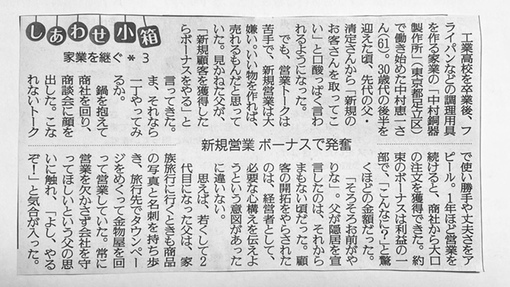 しあわせ小箱
家業を継ぐ＊3
新規営業 ボーナスで発奮
工業高校を卒業後、フ
ライパンなどの調理用具
を作る家業の「中村銅器
製作所」（東京都足立区）
で働き始めた中村恵一さ
ん(61)。30歳代の後半を
迎えた頃、先代の父・
清定さんから「新規の
お客さんを取ってこ
い」と口酸っぱく言わ
れるようになった。
でも、営業トークは
苦手で、新規営業は大
嫌い。いい物を作れば、
売れるもんだと思って
いた。見かねた父が、
「新規顧客を獲得した
らボーナスをやる」と
言ってきた。
ま、それなら
一丁やってみ
るか。
鍋を抱えて
商社を回り、
商談会に顔を
出した。こな
れないトーク
で使い勝手や丈夫さをア
ピール。1年ほど営業を
続けると、商社から大口
の注文を獲得できた。約
束のボーナスは利益の一
部で、「こんなに？」と驚
くほどの金額だった。
「そろそろお前がや
りな」。父が隠居を宣
言したのは、それから
まもない頃だった。顧
客の開拓をやらされた
のは、経営者として、
必要な心構えを伝えよ
うという意図があった
に違いない。
思えば、若くして2
代目になった父は、家
族旅行に行くときも商品
の写真と名刺を持ち歩
き、旅行先でタウンペー
ジをめくって金物屋を回
って営業していた。常に
営業を欠かさず会社を守
ってほしいという父の思
いに触れ、「よし、やる
ぞ！」と気合が入った。